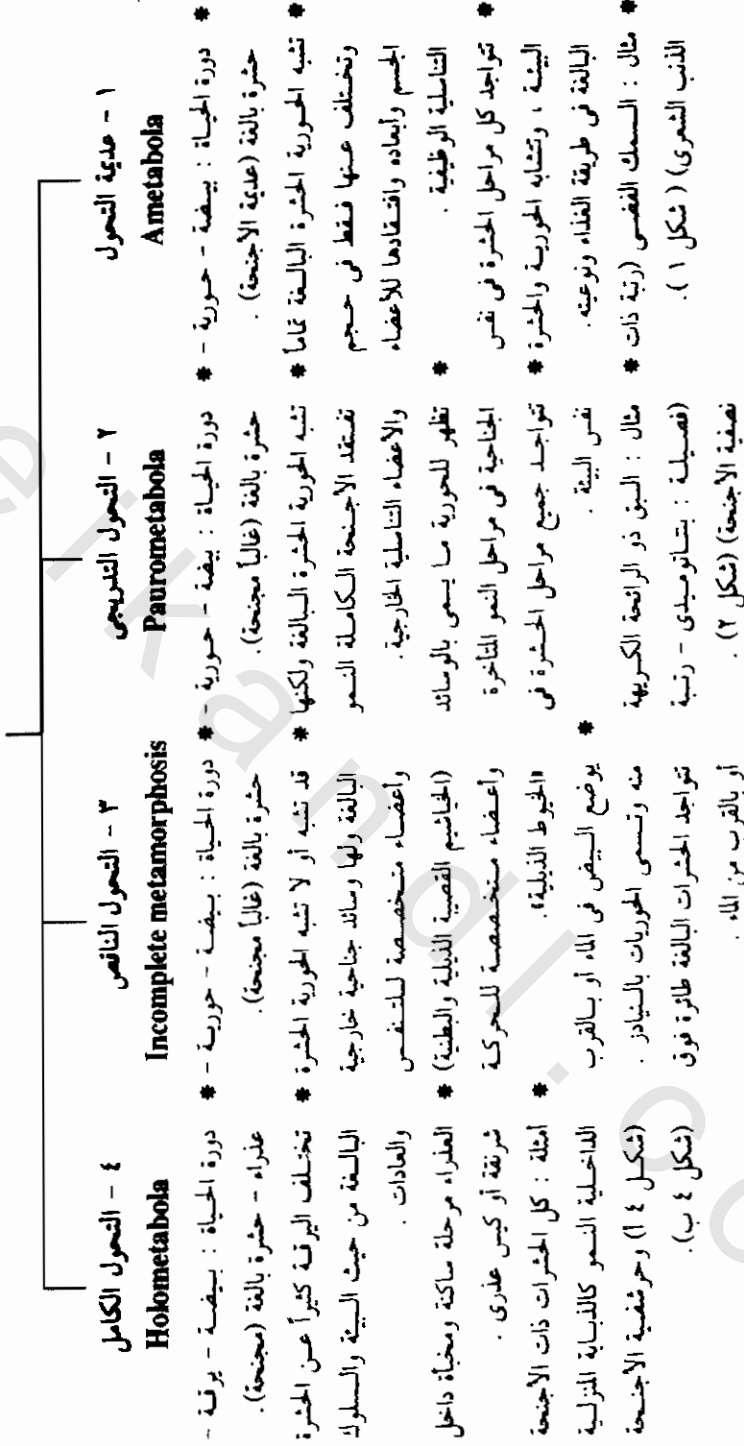 ١ - عديمة التحول
Ametabola
* دورة الحياة : بيضة - حورية -
حشرة بالغة (عديمة الأجنحة) .
* تشبه الحورية الحشرة البالغة تماماً
وتختلف عنها فقط فى حجم
الجسم وأبعاده وافتقادها للأعضاء
التناسلية الوظيفية .
* تتواجد كل مراحل الحشرة فى نفس
البيئة ، وتتشابه الحورية والحشرة
البالغة فى طريقة الغذاء ونوعيته .
* مثال : السمك الفضى (رتبة ذات
الذنب الشعرى) ( شكل ١ ) .
٢ - التحول التدريجى
Paurometabola
* دورة الحياة : بيضة - حورية -
حشرة بالغة (غالباً مجنحة) .
* تشبه الحورية الحشرة البالغة ولكنها
تفتقد الأجنحة الكاملة النمو
والأعضاء التناسلية الخارجية .
* تظهر للحورية ما يسمى بالوسائد
الجناحية فى مراحل النمو المتأخرة
* تتواجد جميع مراحل الحشرة فى
نفس البيئة .
* مثال : البق ذو الرائحة الكريهة
(فصيلة : بنتاتوميدى - رتبة
نصفية الأجنحة) (شكل ٢) .
٣ - التحول الناقص
Incomplete metamorphosis
* دورة الحياة : بيضة - حورية -
حشرة بالغة (غالباً مجنحة) .
* قد تشبه أو لا تشبه الحورية الحشرة
البالغة ولها وسائد جناحية خارجية
وأعضاء متخصصة للتنفس
(الخياشيم القصبية الذيلية والبطنية)
وأعضاء متخصصة للحركة
«الخيوط الذيلية» .
* يوضع البيض فى الماء أو بالقرب
منه وتسمى الحوريات بالنيادز .
تتواجد الحشرات البالغة طائرة فوق
أو بالقرب من الماء .
٤ - التحول الكامل
Holometabola
* دورة الحياة : بيضة - يرقة -
عذراء - حشرة بالغة (مجنحة) .
* تختلف اليرقة كثيراً عن الحشرة
البالغة من حيث البيئة والسلوك
والعادات .
* العذراء مرحلة ساكنة ومخبأة داخل
شرنقة أو كيس عذرى .
* أمثلة : كل الحشرات ذات الأجنحة
الداخلية النمو كالذبابة المنزلية
(شكل ٤ أ) وحرشفية الأجنحة
(شكل ٤ ب) .